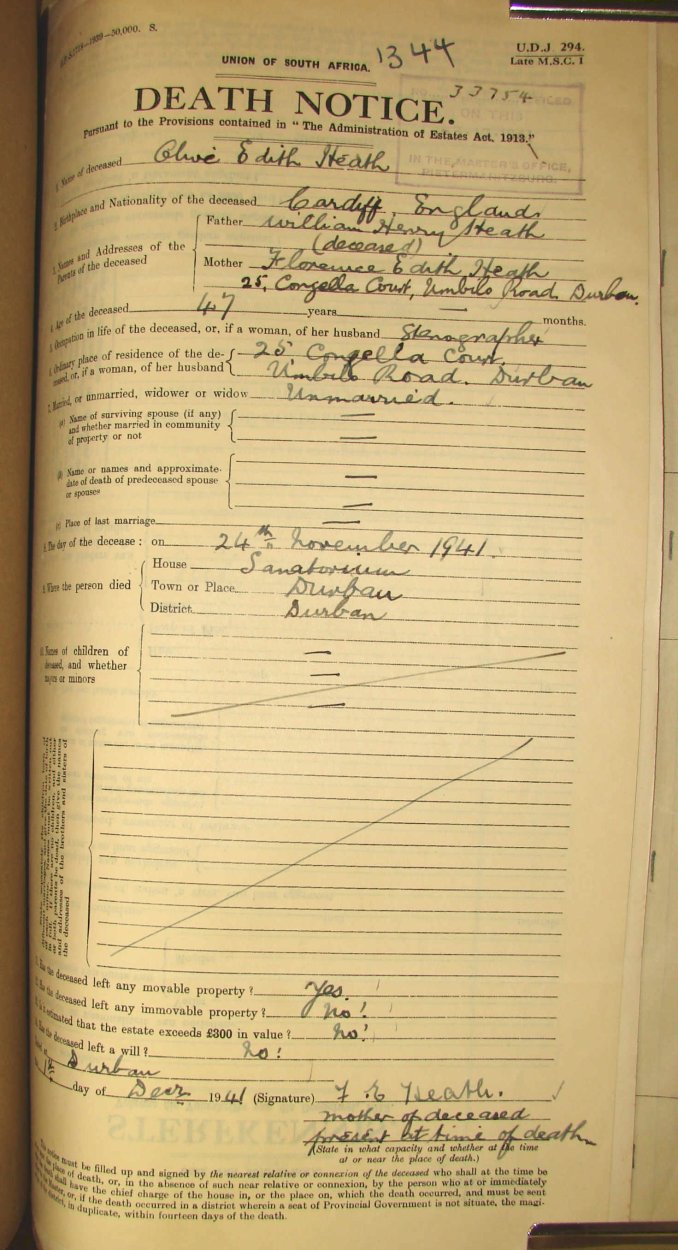 1939—50,000. S.
1344
U.D.J. 294.
Late M.S.C. 1
UNION OF SOUTH AFRICA.
33754
DEATH NOTICE.
Pursuant to the Provisions contained in "The Administration of Estates Act, 1913."
ON THIS
IN THE MASTER'S OFFICE,
PIETERMARITZBURG.
1. Name of deceased Olive Edith Heath
2. Birthplace and Nationality of the deceased Cardiff, England.
3. Names and Addresses of the Parents of the deceased
Father William Henry Heath
(deceased)
Mother Florence Edith Heath
25, Congella Court, Umbilo Road, Durban.
4. Age of the deceased 47 years — months.
5. Occupation in life of the deceased, or, if a woman, of her husband Stenographer
6. Ordinary place of residence of the de- 25, Congella Court,
ceased, or, if a woman, of her husband Umbilo Road. Durban
7. Married, or unmarried, widower or widow Unmarried.
(a) Name of surviving spouse (if any) —
and whether married in community
of property or not —
(b) Name or names and approximate
date of death of predeceased spouse —
or spouses —
(c) Place of last marriage —
8. The day of the decease: on 24th November 1941.
9. Where the person died
House Sanatorium
Town or Place Durban
District Durban
10. Names of children of —
deceased, and whether —
majors or minors —
or both parents be dead, then give the names
and addresses of the brothers and sisters of
the deceased
Has the deceased left any movable property? Yes.
Has the deceased left any immovable property? No!
Is it estimated that the estate exceeds £300 in value? No!
Has the deceased left a will? No!
Dated at Durban
day of Decr 1941 (Signature) F. E. Heath.
mother of deceased
present at time of death
(State in what capacity and whether at the time
at or near the place of death.)
This notice must be filled up and signed by the nearest relative or connexion of the deceased who shall at the time be
place of death, or, in the absence of such near relative or connexion, by the person who at or immediately
shall have the chief charge of the house in, or the place on, which the death occurred, and must be sent
Master, or, if the death occurred in a district wherein a seat of Provincial Government is not situate, the magi-
district, in duplicate, within fourteen days of the death.